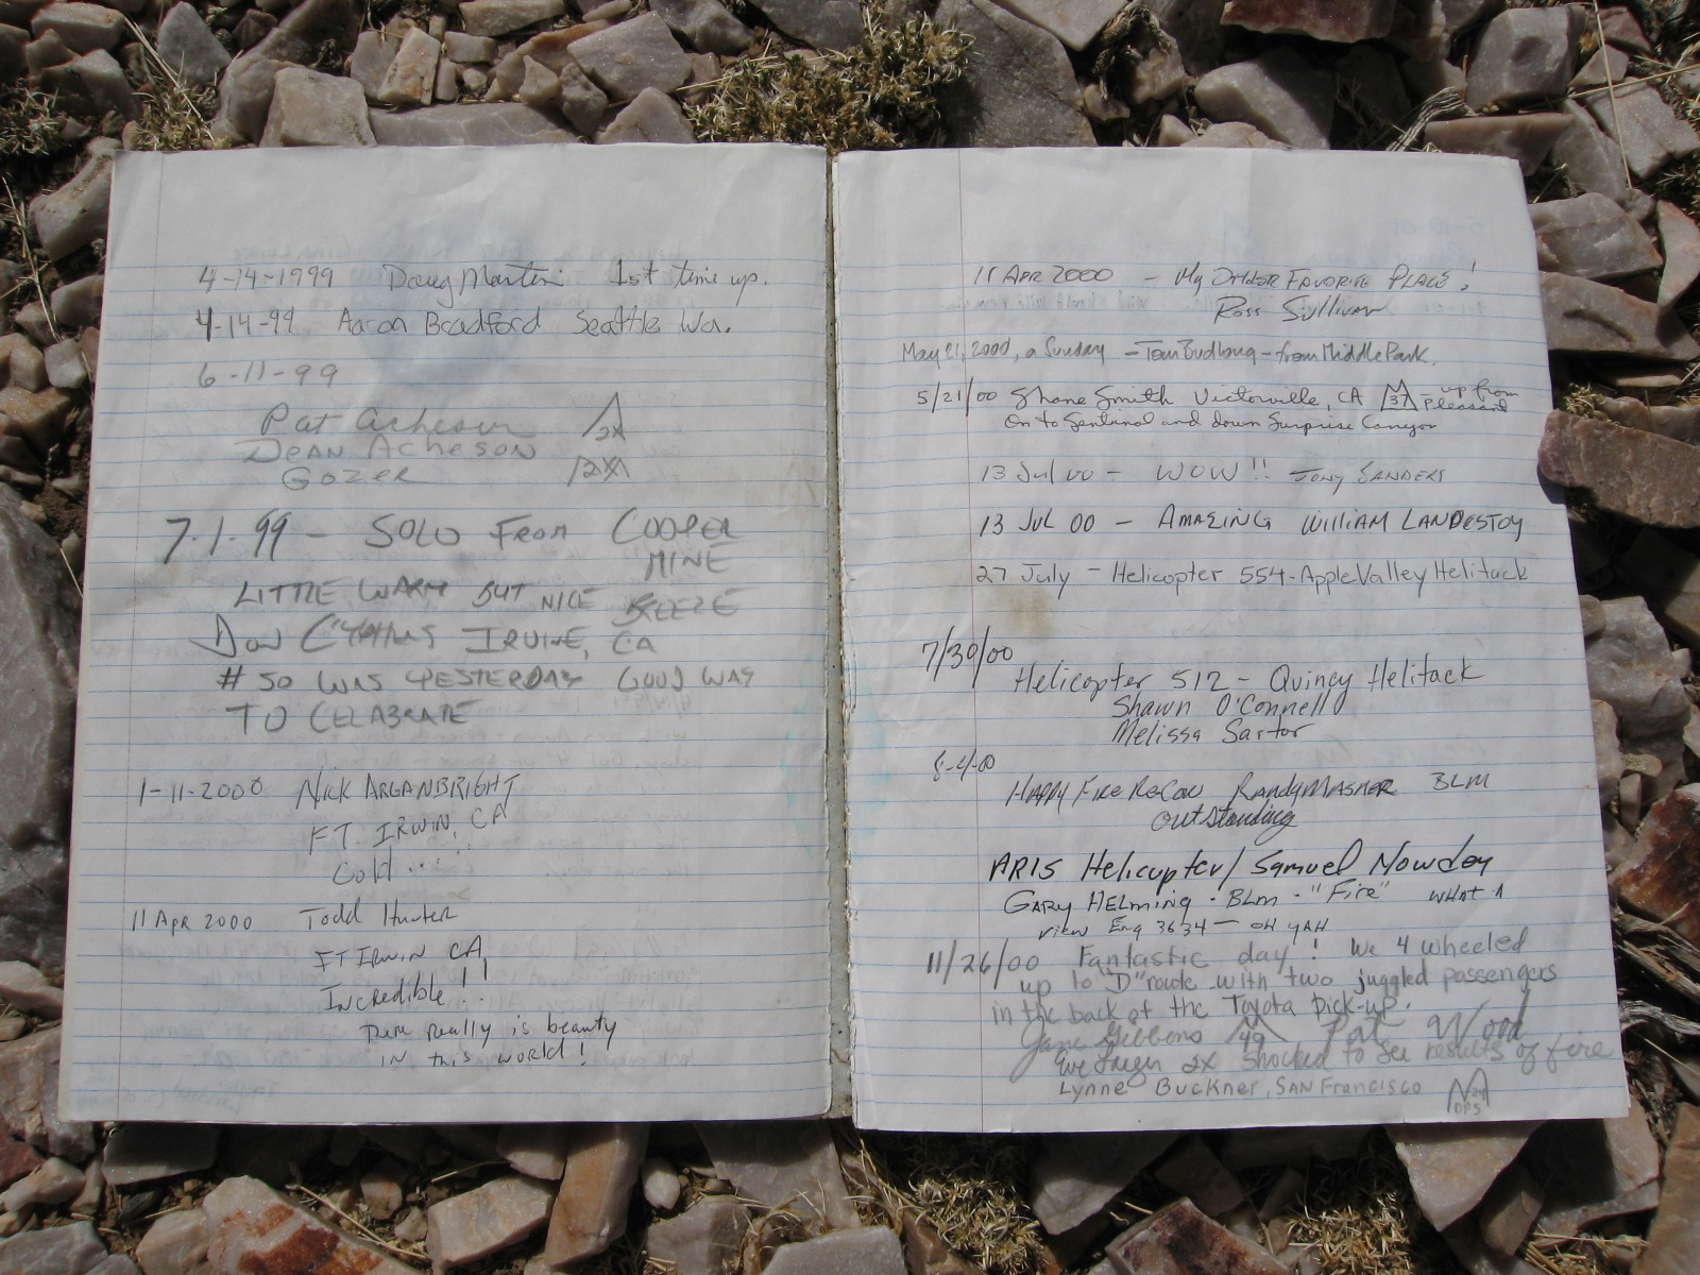 4-14-1999 Doug Martin 1st time up.
4-14-99 Aaron Bradford Seattle Wa.
6-11-99
Pat Acheson 2X
Dean Acheson
Gozer 2X
7.1.99 - SOLO FROM COOPER
MINE
LITTLE WARM BUT NICE BREEZE
DON IRVINE, CA
# 50 WAS YESTERDAY GOOD WAY
TO CELABRATE
1-11-2000 NICK ARGANBRIGHT
FT. IRWIN, CA
Cold .....
11 APR 2000 Todd Hunter
FT IRWIN CA,
Incredible!!
There really is beauty
IN this world!
11 APR 2000 - MY OTHER FAVORITE PLACE!
Ross Sullivan
May 21, 2000, a Sunday - Tom Budlong - from Middle Park.
5/21/00 Shane Smith Victorville, CA 37 - up from
Pleasant
on to Sentinal and down Surprise Canyon
13 Jul 00 - WOW!! TONY SANDERS
13 JUL 00 - AMAZING WILLIAM LANDESTOY
27 July - Helicopter 554 - Apple Valley Helitack
7/30/00
Helicopter 512 - Quincy Helitack
Shawn O'Connell
Melissa Sartor
8-4-00
HAPPY FIRE RECON RANDY BLM
outstanding
ARIS Helicopter / Samuel Mowdey
GARY HELMING - BLM - "Fire" WHAT A
view Eng 3634 - OH YAH
11/26/00 Fantastic day! We 4 wheeled
up to "D" route with two juggled passengers
in the back of the Toyota pick-up.
Jane Gibbons 49 Pat Wood
2X shocked to see results of fire
Lynne Buckner, SAN FRANCISCO
DPS